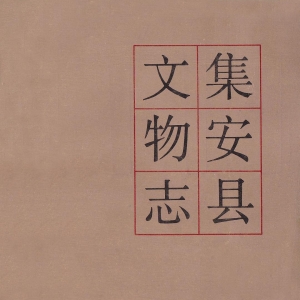 集安县
文物志